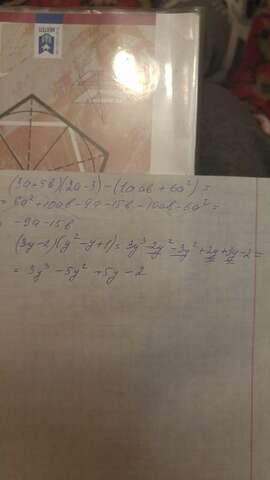 (3a+5b)(2a-3)-(10ab+6a²)=
=6a²+10ab-9a-15b-10ab-6a²=
-9a-15b
(3y-2)(y²-y+1)=3y³-2y²-3y²+2y+3y-2=
=3y³-5y²+5y-2